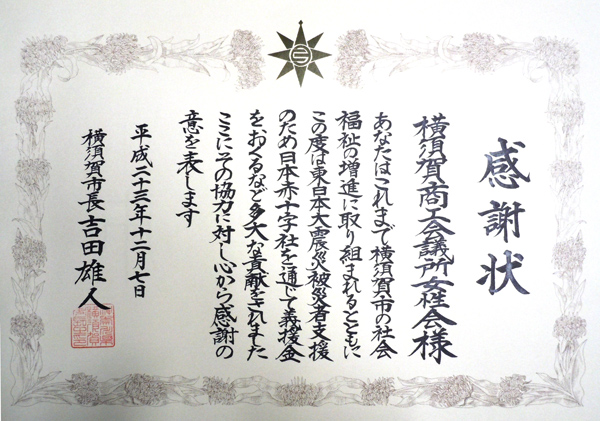 感謝状
横須賀商工会議所女性会様
あなたはこれまで横須賀市の社会
福祉の増進に取り組まれるとともに
この度は東日本大震災被災者支援
のため日本赤十字社を通じて義援金
をおくるなど多大な貢献をされました
ここにその協力に対し心から感謝の
意を表します
平成二十三年十二月七日
横須賀市長 吉田雄人